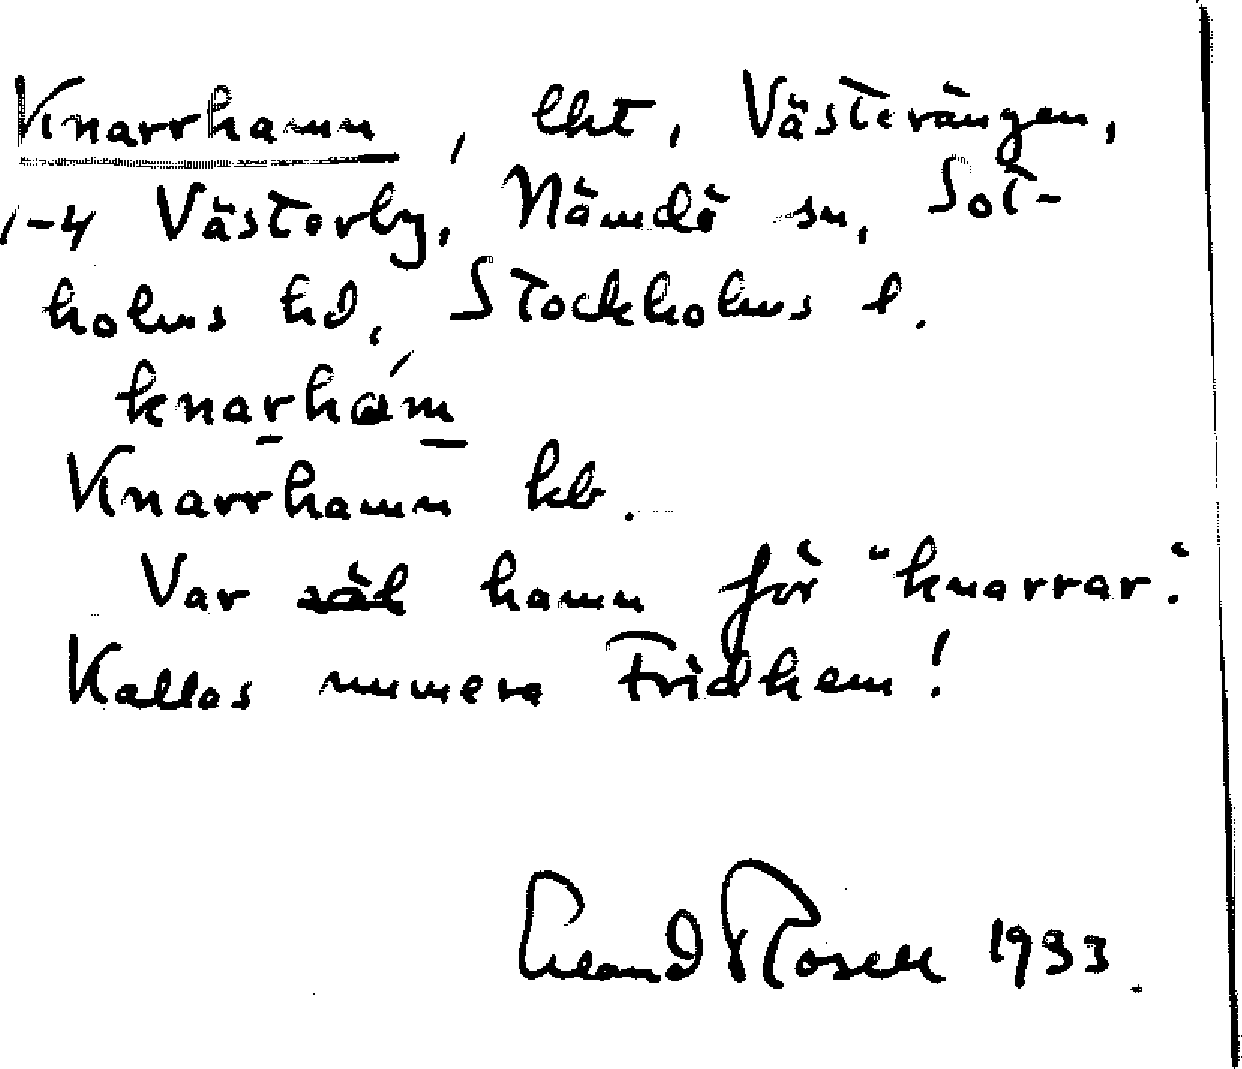 Knarrhamn, lht, Västerängen,
1-4 Västerby, Nämdö sn, Sot-
holms hd, Stockholms l.
knarhám
Knarrhamn kb.
Var hamn för "knarrar".
Kallas numera Fridhem!
Erland Rosell 1933.